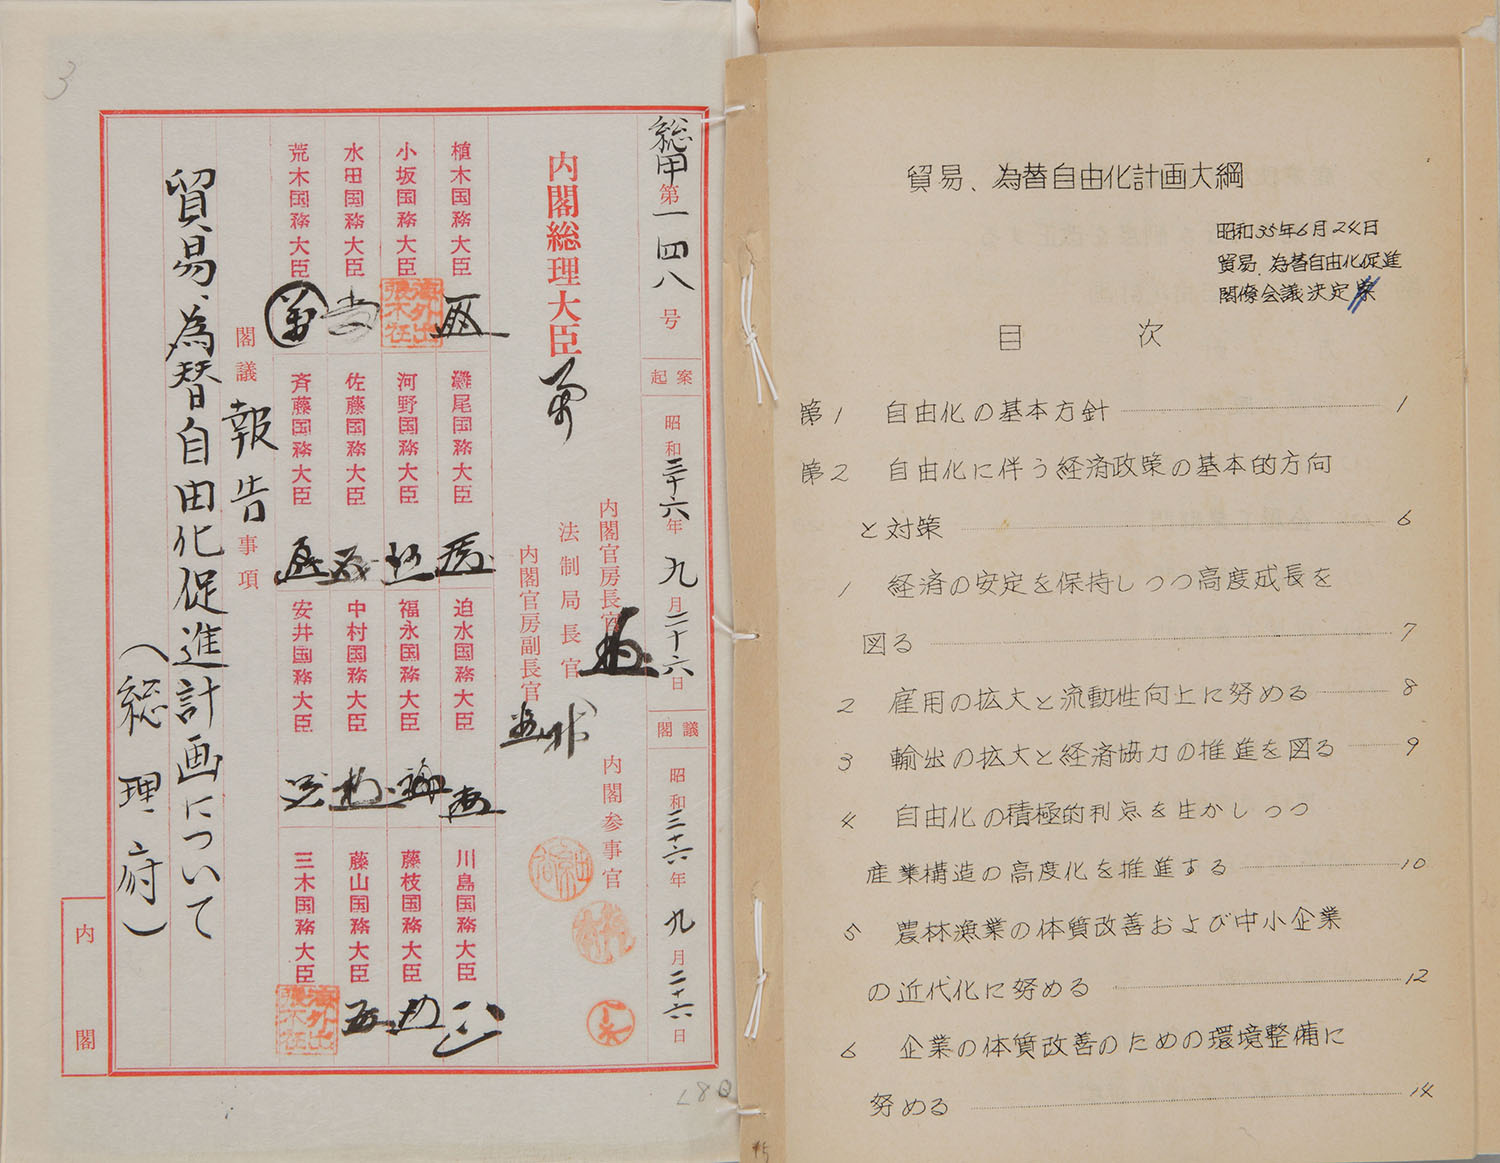 総甲第一四八号
起案
昭和三十六年九月二十六日
閣議
昭和三十六年九月二十六日
内閣官房長官
法制局長官
内閣官房副長官
内閣参事官
内閣総理大臣
植木国務大臣
灘尾国務大臣
迫水国務大臣
川島国務大臣
小坂国務大臣
海外出張不在
河野国務大臣
福永国務大臣
藤枝国務大臣
水田国務大臣
佐藤国務大臣
中村国務大臣
藤山国務大臣
荒木国務大臣
斉藤国務大臣
安井国務大臣
三木国務大臣
海外出張不在
閣議報告事項
貿易、為替自由化促進計画について
（総理府）
内閣
3
貿易、為替自由化計画大綱
昭和35年6月24日
貿易、為替自由化促進
閣僚会議決定案
目次
第1 自由化の基本方針 1
第2 自由化に伴う経済政策の基本的方向
と対策 6
1 経済の安定を保持しつつ高度成長を
図る 7
2 雇用の拡大と流動性向上に努める 8
3 輸出の拡大と経済協力の推進を図る 9
4 自由化の積極的利点を生かしつつ
産業構造の高度化を推進する 10
5 農林漁業の体質改善および中小企業
の近代化に努める 12
6 企業の体質改善のための環境整備に
努める 14